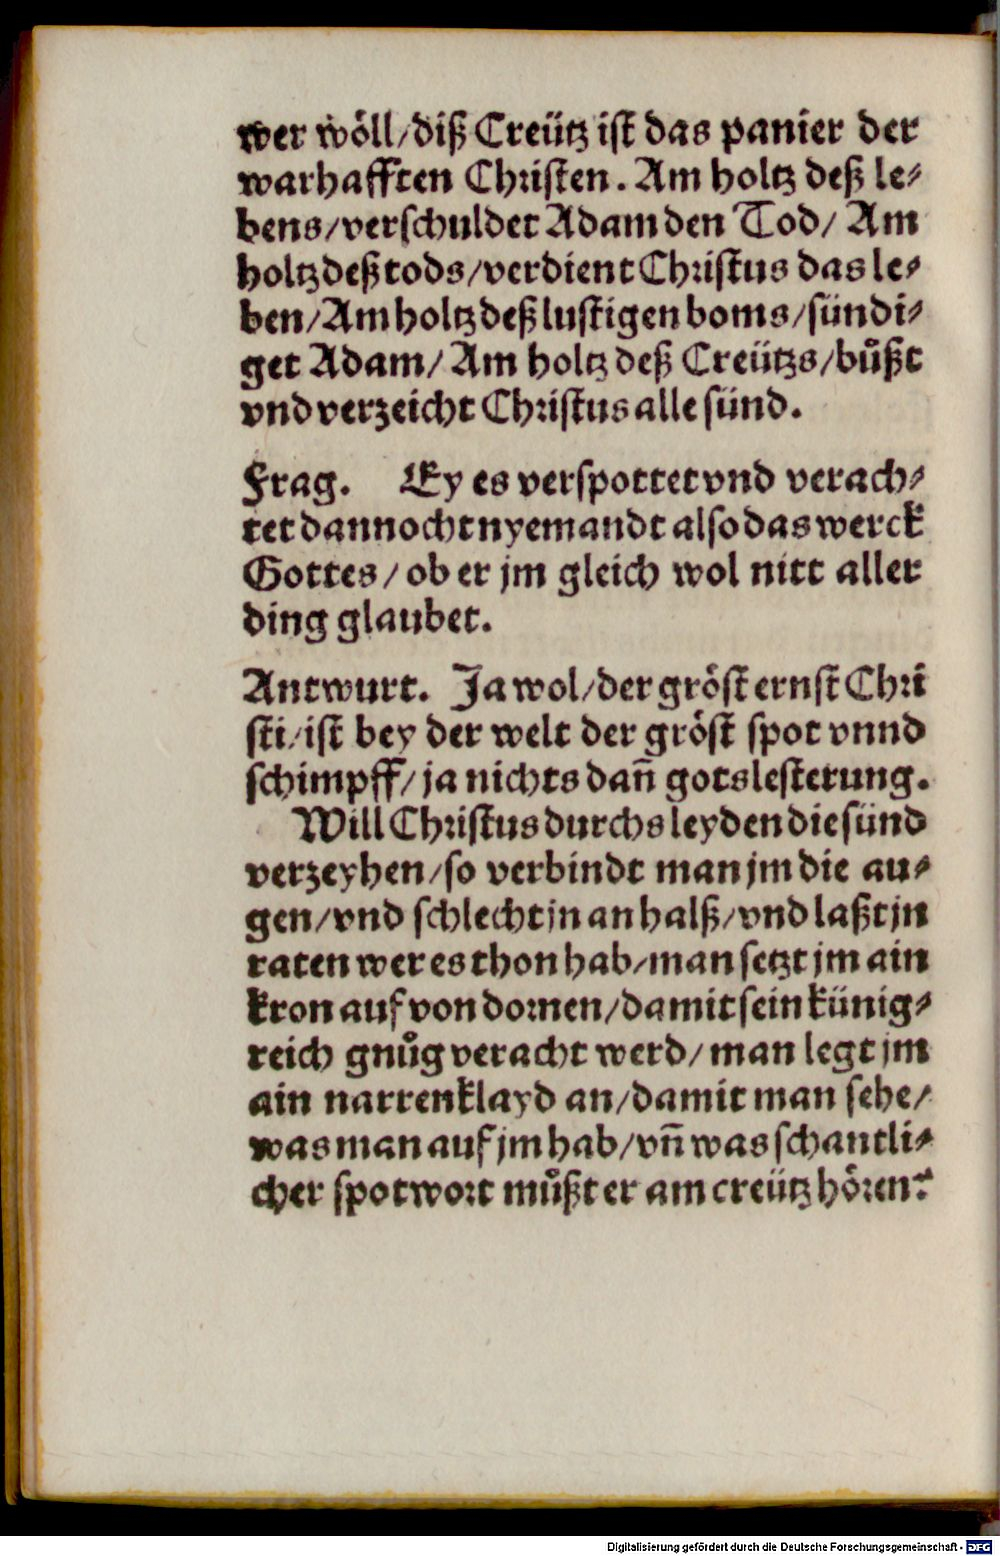 wer wöll/diß Creütz ist das panier der
warhafften Christen. Am holtz deß le⸗
bens/verschuldet Adam den Tod/ Am
holtz deß tods/verdient Christus das le⸗
ben/Am holtz deß lustigen boms/sündi⸗
get Adam/ Am holtz deß Creützs/bůßt
vnd verzeicht Christus alle sünd.
Frag. Ey es verspottet vnd verach⸗
tet dannocht nyemandt also das werck
Gottes/ ob er jm gleich wol nitt aller
ding glaubet.
Antwurt. Ja wol/der gröst ernst Chri
sti/ist bey der welt der gröst spot vnnd
schimpff/ ja nichts dañ gotslesterung.
Will Christus durchs leyden die sünd
verzeyhen/so verbindt man jm die au⸗
gen/vnd schlecht jn an halß/vnd laßt jn
raten wer es thon hab/man setzt jm ain
kron auf von dornen/damit sein künig⸗
reich gnůg veracht werd/man legt jm
ain narrenklayd an/damit man sehe/
was man auf jm hab/vñ was schantli⸗
cher spotwort můßt er am creütz hören?
Digitalisierung gefördert durch die Deutsche Forschungsgemeinschaft - DFG